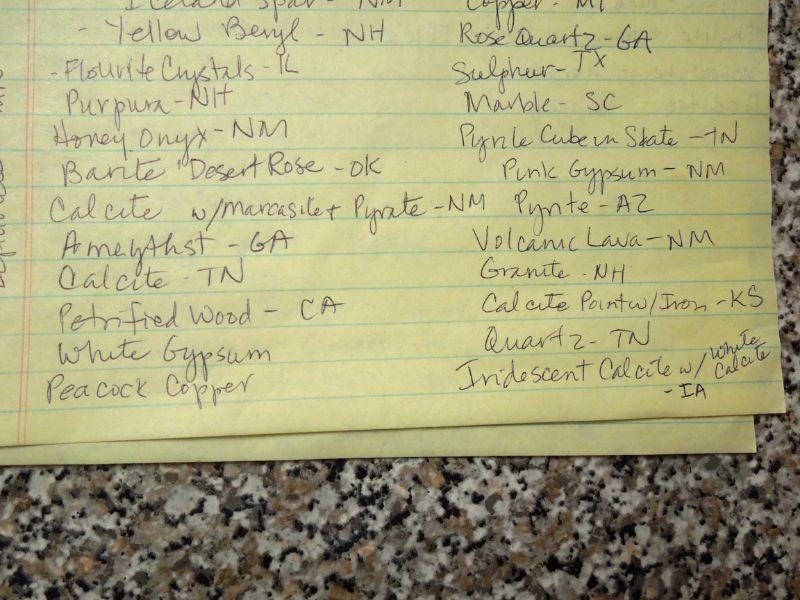 Iceland Spar - NM
- Yellow Beryl - NH
- Flourite Crystals - IL
Purpura - NH
Honey Onyx - NM
Barite Desert Rose - OK
Calcite w/Marcasite + Pyrate - NM
Ameythst - GA
Calcite - TN
Petrified Wood - CA
White Gypsum
Peacock Copper
Copper - MI
Rose Quartz - GA
Sulphur - TX
Marble - SC
Pyrite Cube in Skate - TN
Pink Gypsum - NM
Pyrite - AZ
Volcanic Lava - NM
Granite - NH
Calcite Point w/Iron - KS
Quartz - TN
Iridescent Calcite w/ White Calcite
- IA